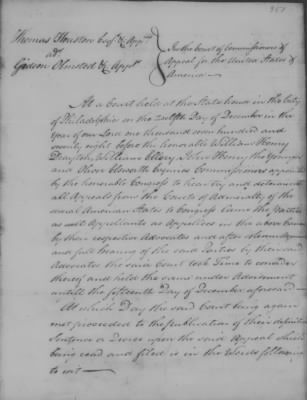 351
Thomas Houston Esqr & Appts
ads
Gideon Olmsted & Appts
In the Court of Commissioners of
Appeal for the United States of
America
At a Court held at the State House in the City
of Philadelphia on the twelfth Day of December in the
Year of our Lord one thousand seven hundred and
seventy eight before the honorable William Henry
Drayton, William Ellery, John Henry the Younger
and Oliver Elsworth Esquires Commissioners appointed
by the honorable Congress to hear try and determine
all Appeals from the Courts of Admiralty of the
several American States to Congress Came the Parties
as well Appellants as Appellees in the above Cause
by their respective Advocates and after
and full hearing of the said Parties by their said
Advocates the said Court took Time to consider
thereof and held the same under Advisement
untill the fifteenth Day of December aforesaid
At which Day the said Court being again
met proceeded to the publication of their definitive
Sentence or Decree upon the said Appeal which
being read and filed is in the Words following
to wit